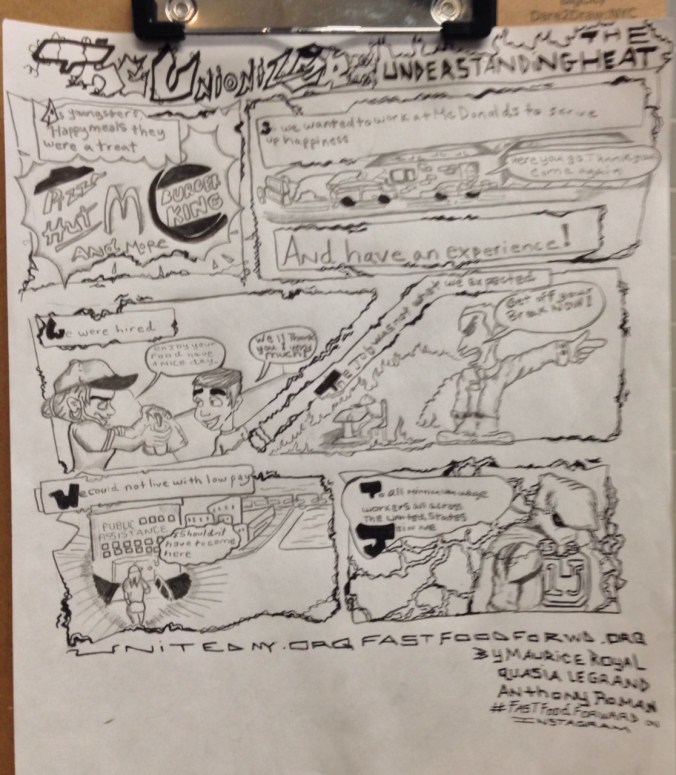 THE UNIONIZERS
THE
UNDERSTANDING HEAT
As youngsters
Happy meals they
were a treat
PIZZA
HUT
M
BURGER
KING
AND MORE
So we wanted to work at McDonalds to serve
up happiness
Here you go Thank you
come again
And have an experience!
We were hired
Enjoy your
Food have
a nice day.
Well Thank
you very
much!
The job was not what we expected
Get off your
Break NOW!
We could not live with low pay
PUBLC
ASSISTANCE
I Shouldn't
have to come
here
To all minimum wage
workers all across
The United States
Join me
UNITEDNY.ORG FASTFOODFORWD.ORG
By MAURICE ROYAL
QUASIA LEGRAND
ANTHONY ROMAN
#FASTFOODFORWARD ON
INSTAGRAM